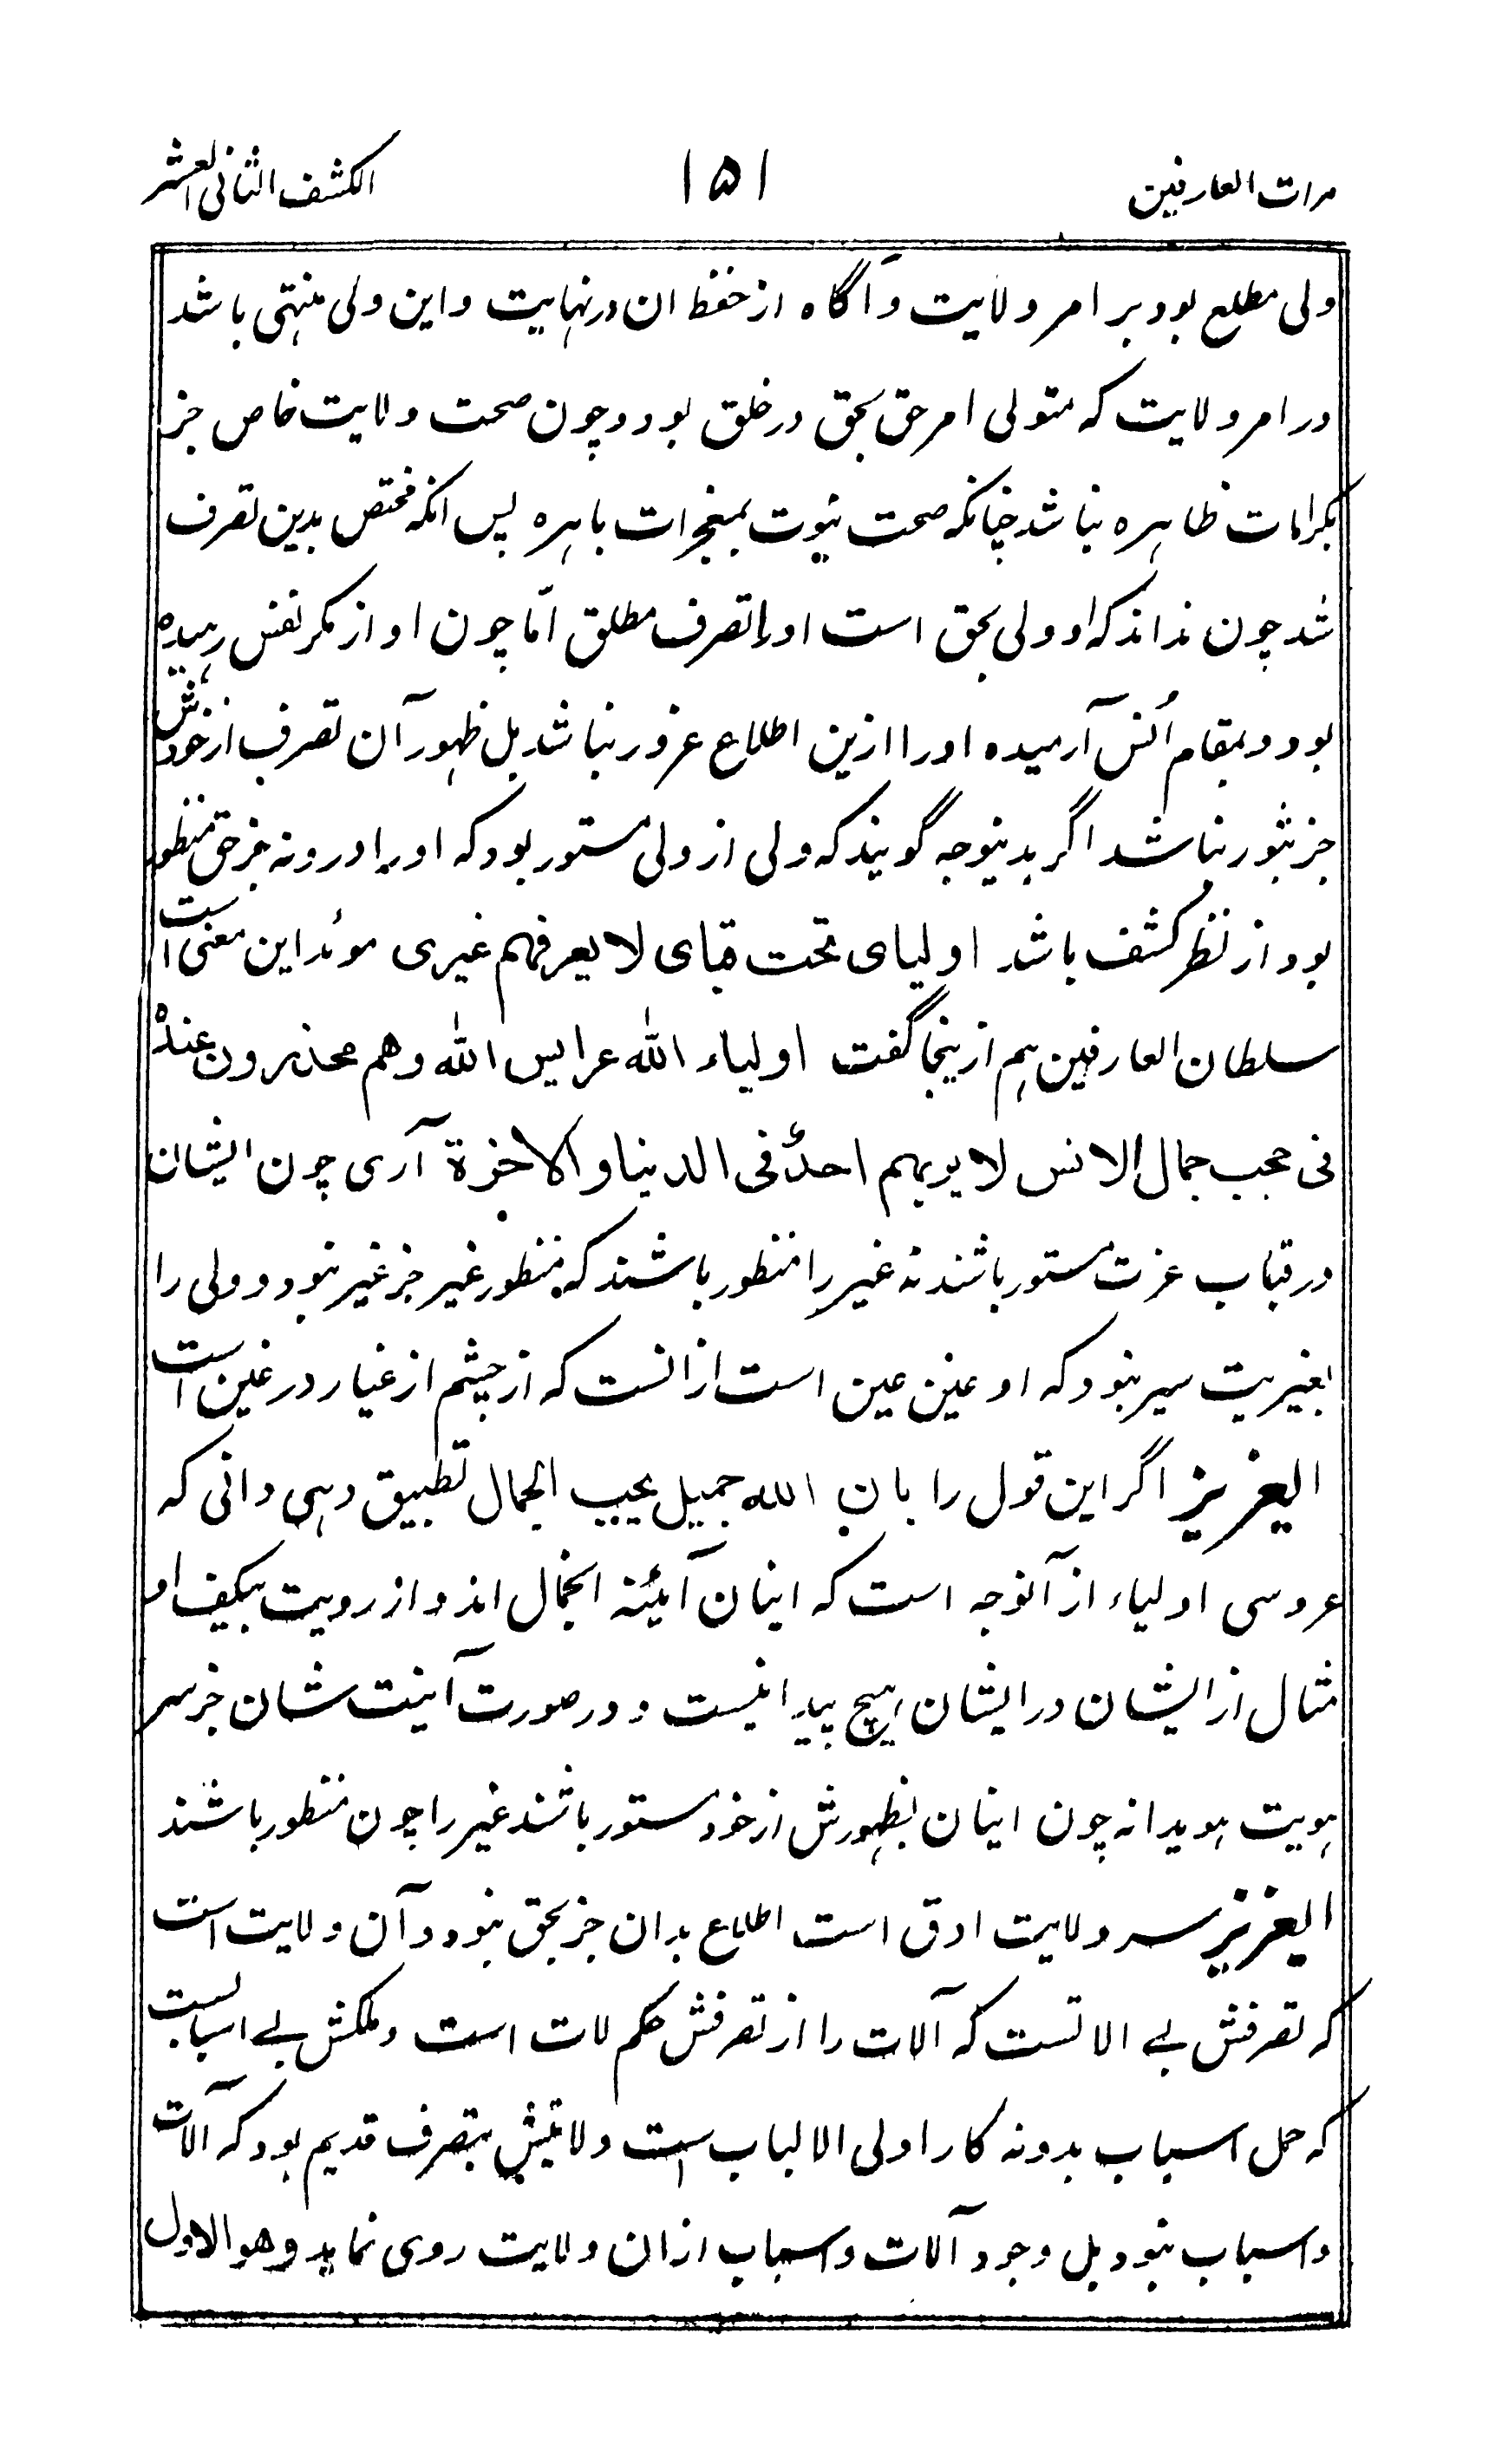 مرات العارفین ۱۵۱ الکشف الثانی العشر
ولی مطلع بود بر امر ولایت و آگاه از حفظ ان در نهایت و این ولی منتهی باشد
در امر ولایت که متولی امر حق بحق در خلق بود و چون صحت ولایت خاص جز
بکرامات ظاهره نباشد چنانکه صحت نبوت بمعجزات باهره پس انکه مختص بدین تصرف
شد چون نداند که او ولی بحق است اورا تصرف مطلق امّا چون او از مکر نفس رهیده
بود و بمقام اُنس آرمیده اورا ازین اطلاع غرور نباشد بل ظهور آن تصرف از خودش
جز نثور نباشد اگر بدینوجه گویند که ولی از ولی مستور بود که اورا درونه بغرحق منظور
بود از نظر کشف باشد اولیای تحت قبای لا یعرفهم غیری موئد این معنی است
سلطان العارفین هم ازینجا گفت اولیاء الله عرایس الله وهم مخدرون عندهٗ
فی حجب جمال الانس لا یریهم احدٌ فی الدنیا والاخرة آری چون ایشان
در قباب عزت مستور باشند نه غیر را منظور باشند که منظور غیر جز غیر نبود و ولی را
بغیریت سیر نبود که او عین عین است ازانست که از چشم ازغیار در غین است
ایعزیز اگر این قول را بان الله جمیل یحب الجمال تطبیق دهی دانی که
عروسی اولیاء از آنوجه است که اینان آئینهٔ انجمال اند و از رویت بیکیف او
مثال از ایشان در ایشان هیچ پیدا نیست و در صورت آینت شان جز سر
هویت هویدا نه چون اینان بظهورش از خود مستور باشند غیر را چون منظور باشند
ایعزیز سر ولایت ادق است اطلاع بدان جز بحق نبود و آن ولایت است
که تصرفش بے الاتست که آلات را از تصرفش حکم لات است و ملکش بے اسبابست
که حمل اسباب بدونه کار اولی الالباب است ولایتش بتصرف قدیم بود که آلات
و اسباب نبود بل وجود آلات و اسباب ازان ولایت روی نماید وهو الاول